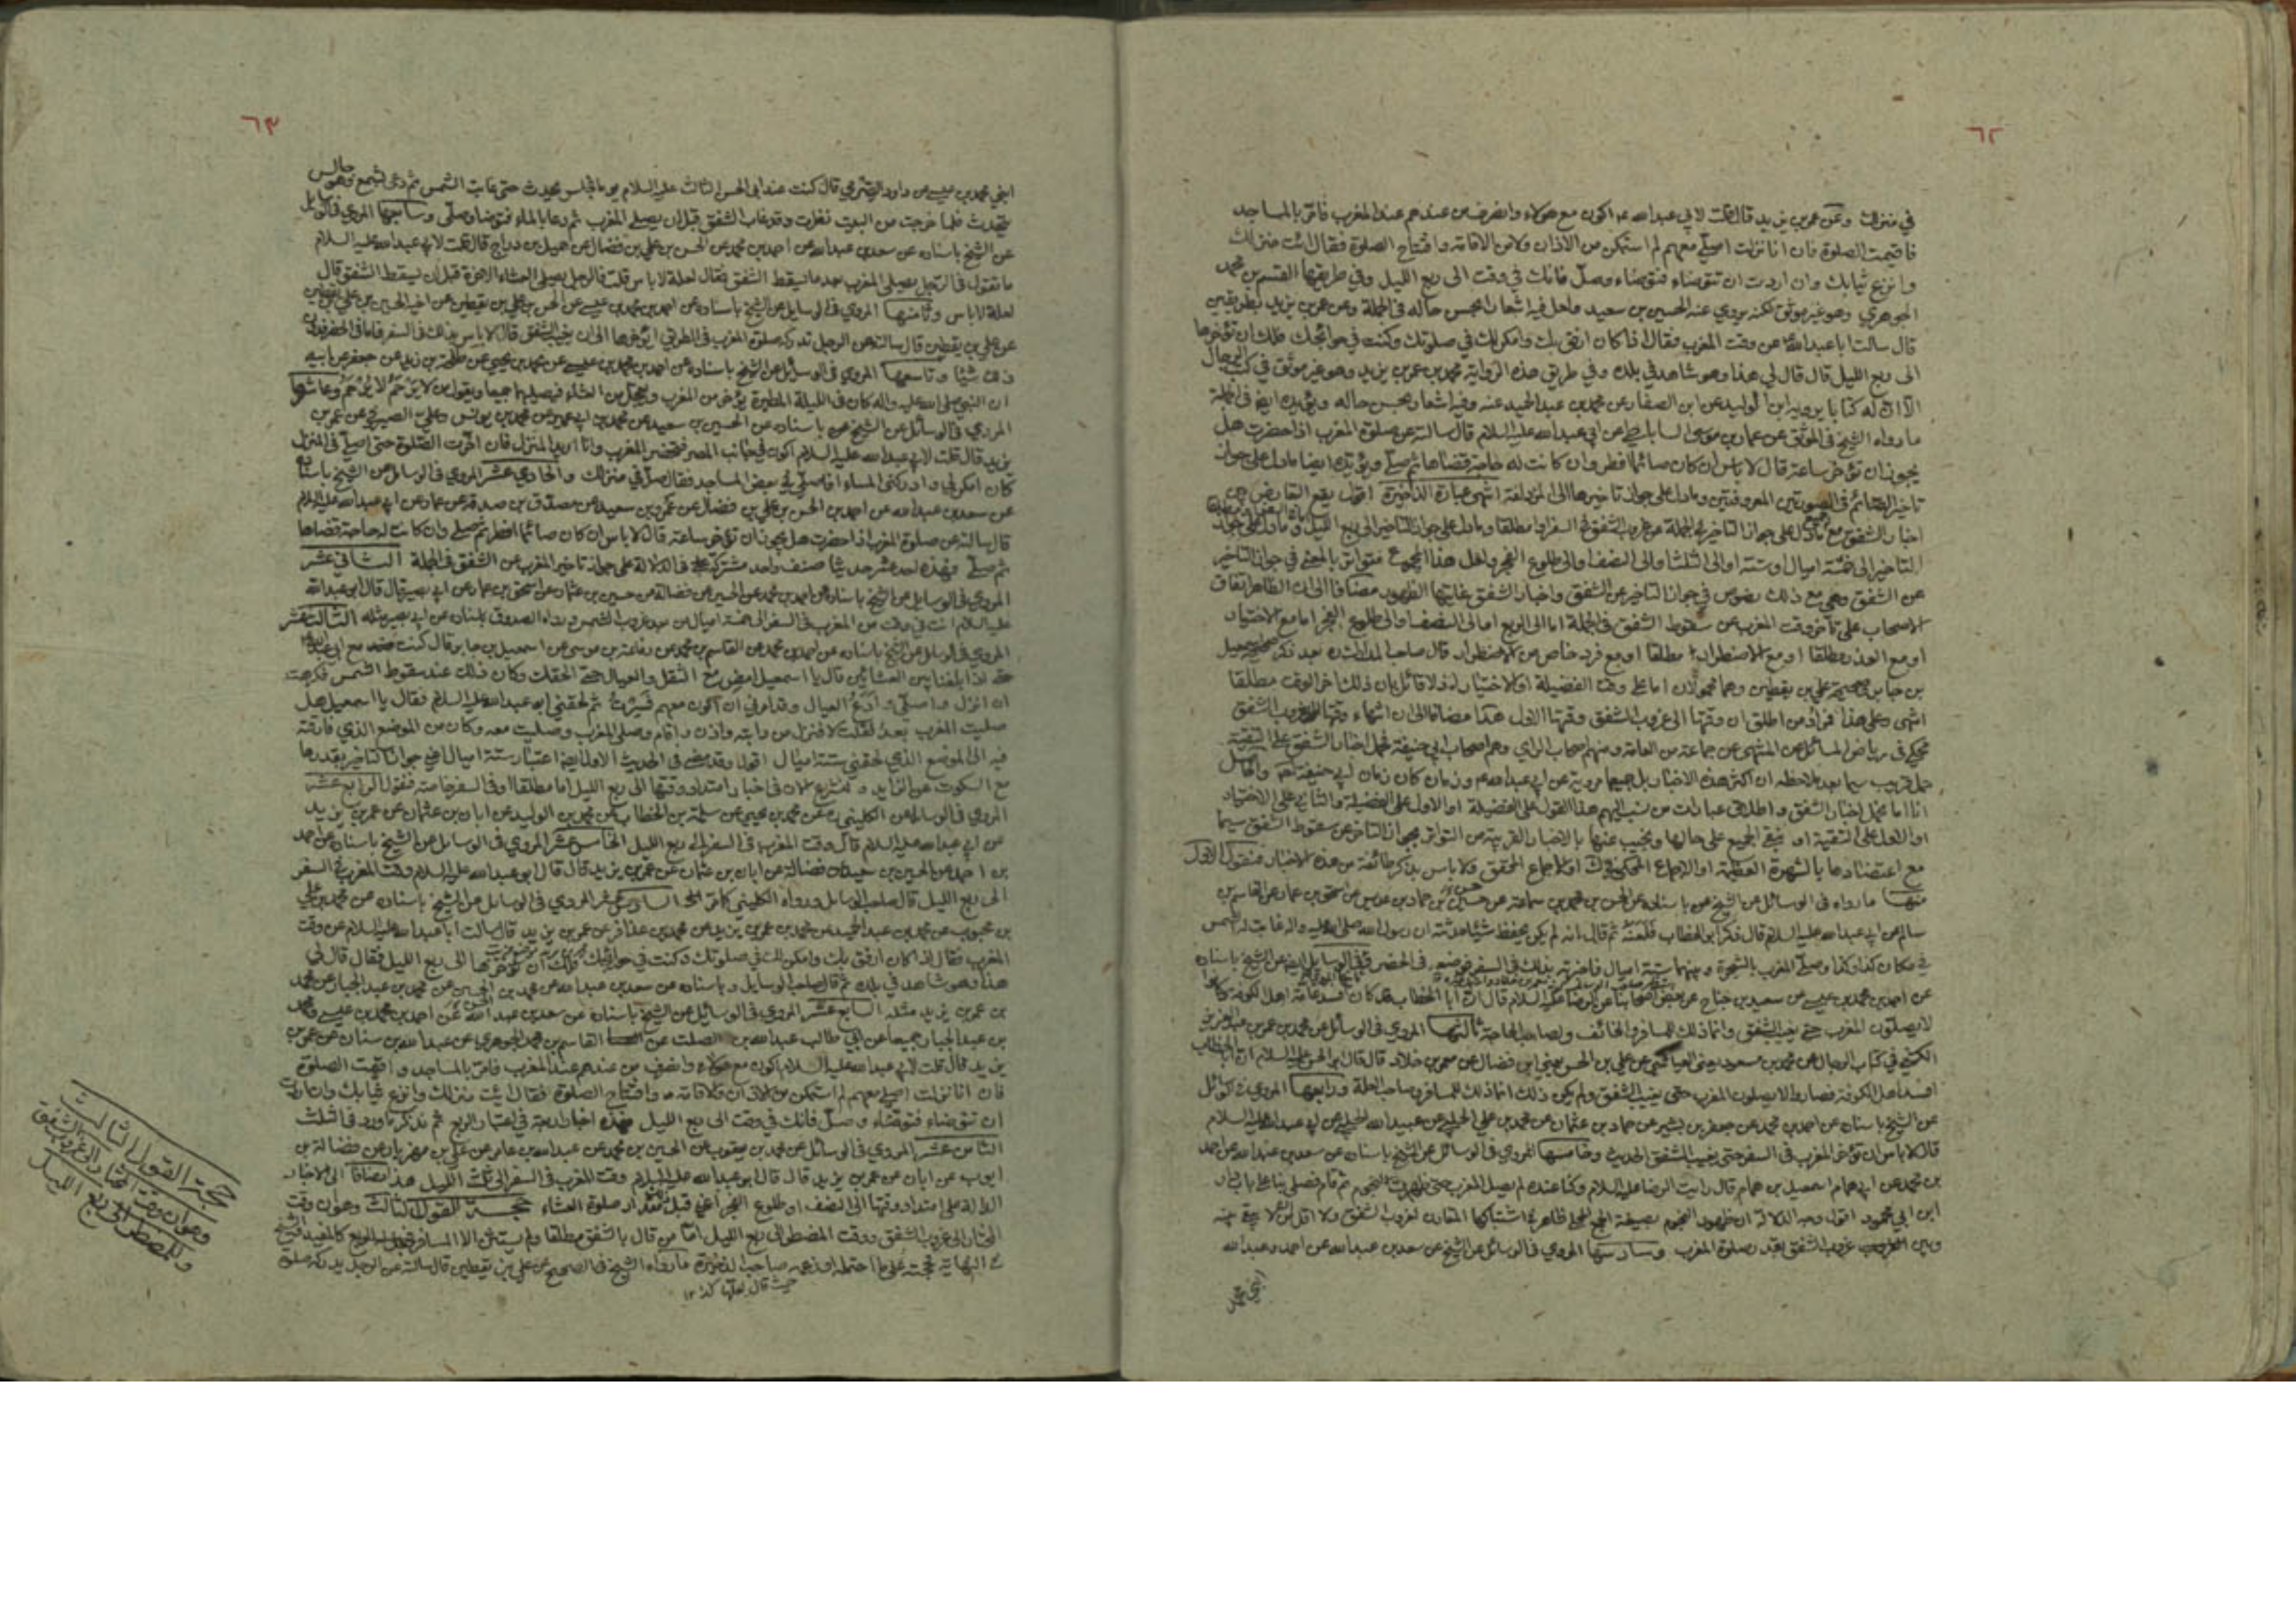 ٦٢
في منزلك وعن عمر بن يزيد قال قلت لابي عبدالله ع اكون مع هولاء وانصرف من عندهم عند المغرب فامر بالمساجد
فاقيمت الصلوة فان انا نزلت اصلي معهم لم استمكن من الاذان ولا من الاقامة وافتتاح الصلوة فقال ائت منزلك
وانزع ثيابك وان اردت ان تتوضاء فتوضاء وصل فانك في وقت الى ربع الليل وفي طريقها القسم بن محمد
الجوهري وهو غير موثق لكنه يروي عنه الحسين بن سعيد ولعل فيه اشعارا بحسن حاله في الجملة وعن عمر بن يزيد بطريقين
قال سالت اباعبدالله ع عن وقت المغرب فقال اذا كان ارفق بك وامكن لك في صلوتك وكنت في حوائجك فلك ان تؤخرها
الى ربع الليل قال قال لي هذا وهو شاهد في بلده وفي طريق هذه الرواية محمد بن عمر بن يزيد وهو غير موثق في كتب الرجال
الا ان له كتابا يرويه ابن الوليد عن ابن الصفار عن محمد بن عبد الحميد عنه وفيه اشعار بحسن حاله ويؤيده ايضا في الجملة
ما رواه الشيخ في الموثق عن عمار بن موسى الساباطي عن ابي عبدالله عليه السلام قال سالته عن صلوة المغرب اذا حضرت هل
يجوز ان تؤخر ساعة قال لا باس ان كان صائما افطر وان كانت له حاجة قضاها ثم صلى ويؤيده ايضا ما دل على جواز
تاخير الصائم في الصورتين المعروفتين وما دل على جواز تاخيرها الى المزدلفة انتهى عبارة الذخيرة اقول يقع التعارض بين
اخبار الشفق مع ما دل على جواز التاخير في الجملة عن غروب الشفق في السفر او مطلقا وما دل على جواز التاخير الى ربع الليل وما دل على جواز
التاخير الى خمسة اميال او ستة او الى الثلث او الى النصف او الى طلوع الفجر ولعل هذا المجموع متواتر بالمعنى في جواز التاخير
عن الشفق وهي مع ذلك نصوص في جواز التاخير عن الشفق واخبار الشفق بغايتها الظهور مضافا الى ان الظاهر اتفاق
الاصحاب على تاخر وقت المغرب عن سقوط الشفق في الجملة اما الى الربع اما الى النصف او الى طلوع الفجر اما مع الاختيار
او مع العذر مطلقا او مع الاضطرار مطلقا او مع فرد خاص من الاضطرار قال صاحب المدارك بعد ذكر صحيحة اسمعيل
بن جابر وصحيحة علي بن يقطين وهما محمولان اما على وقت الفضيلة او الاختيار اذ لا قائل بان ذلك اخر الوقت مطلقا
انتهى وعلى هذا فمراد من اطلق ان وقتها الى غروب الشفق وقتها الاول هكذا مضافا الى ان انتهاء وقتها الى غروب الشفق
محكي في رياض المسائل عن المنتهى عن جماعة من العامة ومنهم اصحاب الراي وهم اصحاب ابي حنيفة فحمل اخبار الشفق على التقية
حمل قريب سيما بعد ملاحظة ان اكثر هذه الاخبار بل جميعها مروية عن ابي عبدالله ع وزمان كان زمان ابي حنيفة والحاصل
انا اما نحمل اخبار الشفق واطلاق عبارات من نسب اليهم هذا القول على الفضيلة او الاول على الفضيلة والثاني على الاختيار
او الاول على التقية او نبقي الجميع على حالها ونجيب عنها بالاخبار القريبة من التواتر بجواز التاخر عن سقوط الشفق سيما
مع اعتضادها بالشهرة العظيمة او الاجماع المحكي او الاجماع المحقق ولا باس بذكر طائفة من هذه الاخبار فنقول الاول
منها ما رواه في الوسائل عن الشيخ ره باسناده عن الحسن بن محمد بن سماعة عن حسين بن حماد بن عديس عن اسحق بن عمار عن القاسم بن
سالم عن ابي عبدالله عليه السلام قال ذكر ابو الخطاب فلعنه ثم قال انه لم يكن يحفظ شيئا حدثته ان رسول الله صلى الله عليه واله غابت له الشمس
في مكان كذا وكذا وصلى المغرب بالشجرة وبينهما ستة اميال فاخبرته بذلك في السفر فوضعه في الحضر وفي الوسائل ايضا عن الشيخ باسناده
عن احمد بن محمد بن عيسى عن سعيد بن جناح عن بعض اصحابنا عن الرضا عليه السلام قال ان ابا الخطاب قد كان افسد عامة اهل الكوفة وكانوا
لا يصلون المغرب حتى يغيب الشفق وانما ذلك للمسافر والخائف ولصاحب الحاجة ثالثها المروي في الوسائل عن محمد بن عمر بن عبد العزيز
الكشي في كتاب الرجال عن محمد بن مسعود يعني العياشي عن علي بن الحسن يعني ابن فضال عن معمر بن خلاد قال قال ابو الحسن عليه السلام ان ابا الخطاب
افسد اهل الكوفة فصاروا لا يصلون المغرب حتى يغيب الشفق ولم يكن ذلك انما ذلك للمسافر وصاحب العلة ورابعها المروي في الوسائل
عن الشيخ باسناده عن احمد بن محمد عن جعفر بن بشير عن حماد بن عثمان عن محمد بن علي الحلبي عن عبيد الله الحلبي عن ابي عبدالله عليه السلام
قال لا باس ان تؤخر المغرب في السفر حتى يغيب الشفق الحديث وخامسها المروي في الوسائل عن الشيخ باسناده عن سعد بن عبدالله عن احمد
بن محمد عن ابي همام اسمعيل بن همام قال رايت الرضا عليه السلام وكنا عنده لم يصل المغرب حتى ظهرت النجوم ثم قام فصلى بنا على باب دار
ابن ابي محمود اقول وجه الدلالة ان ظهور النجوم بصيغة الجمع المحلى ظاهر في اشتباكها المقارن لغروب الشفق ولا اقل من ان لا يبقى بينه
وبين غروب الشفق بقدر صلوة المغرب وسادسها المروي في الوسائل عن الشيخ عن سعد بن عبدالله عن احمد وعبدالله
ابني محمد
٦٣
ابني محمد بن عيسى عن داود الصرمي قال كنت عند ابي الحسن الثالث عليه السلام يوما فجلس يحدث حتى غابت الشمس ثم دعى بشمع وهو جالس
يتحدث فلما خرجت من البيت نظرت وقد غاب الشفق قبل ان يصلي المغرب ثم دعا بالماء فتوضا وصلى وسابعها المروي في الوسائل
عن الشيخ باسناده عن سعد بن عبدالله عن احمد بن محمد عن الحسن بن علي بن فضال عن جميل بن دراج قال قلت لابي عبدالله عليه السلام
ما تقول في الرجل يصلي المغرب بعد ما يسقط الشفق فقال لعلة لا باس قلت فالرجل يصلي العشاء الاخرة قبل ان يسقط الشفق قال
لعلة لا باس وثامنها المروي في الوسائل عن الشيخ باسناده عن احمد بن محمد بن عيسى عن الحسن بن علي بن يقطين عن اخيه الحسين بن علي بن يقطين
عن علي بن يقطين قال سالته عن الرجل تدركه صلوة المغرب في الطريق ايؤخرها الى ان يغيب الشفق قال لا باس بذلك في السفر فاما في الحضر فدون
ذلك شيئا وتاسعها المروي في الوسائل عن الشيخ باسناده عن احمد بن محمد بن عيسى عن محمد بن يحيى عن طلحة بن زيد عن جعفر عن ابيه
ان النبي صلى الله عليه واله كان في الليلة المطيرة يؤخر من المغرب ويعجل من العشاء فيصليهما جميعا ويقول من لا يرحم لا يرحم وعاشرها
المروي في الوسائل عن الشيخ ره باسناده عن الحسين بن سعيد عن محمد بن ابي عمير عن محمد بن يونس وعلي الصيرفي عن عمر بن
يزيد قال قلت لابي عبدالله عليه السلام اكون في جانب المصر فتحضر المغرب وانا اريد المنزل فان اخرت الصلوة حتى اصلي في المنزل
كان امكن لي وادركني المساء افاصلي في بعض المساجد فقال صل في منزلك والحادي عشر المروي في الوسائل عن الشيخ باسناده
عن سعد بن عبدالله عن احمد بن الحسن بن علي بن فضال عن عمرو بن سعيد عن مصدق بن صدقة عن عمار عن ابي عبدالله عليه السلام
قال سالته عن صلوة المغرب اذا حضرت هل يجوز ان تؤخر ساعة قال لا باس ان كان صائما افطر ثم صلى وان كانت له حاجة قضاها
ثم صلى وهذه احد عشر حديثا صنف واحد مشتركة في الدلالة على جواز تاخير المغرب عن الشفق في الجملة الثاني عشر
المروي في الوسائل عن الشيخ باسناده عن احمد بن محمد عن الحسين عن فضالة عن حسين بن عثمان عن اسحق بن عمار عن ابي بصير قال قال ابو عبدالله
عليه السلام انت في وقت من المغرب في السفر الى خمسة اميال من بعد غروب الشمس ورواه الصدوق باسناده عن ابي بصير مثله الثالث عشر
المروي في الوسائل عن الشيخ باسناده عن احمد بن محمد عن القاسم بن محمد عن رفاعة بن موسى عن اسمعيل بن جابر قال كنت مع ابي عبدالله
حتى اذا بلغنا بين العشائين قال يا اسمعيل امض مع الثقل والعيال حتى الحقك وكان ذلك عند سقوط الشمس فكرهت
ان انزل واصلي وادع العيال وقد امرني ان اكون معهم فسرت ثم لحقني ابو عبدالله عليه السلام فقال يا اسمعيل هل
صليت المغرب بعد فقلت لا فنزل من دابته واذن واقام وصلى المغرب وصليت معه وكان من الموضع الذي فارقته
فيه الى الموضع الذي لحقني ستة اميال اقول وقد مضى في الحديث الاول ايضا اعتبار ستة اميال اي جواز التاخير بقدرها
مع السكوت عن الزايد ولنشرع الان في اخبار امتداد وقتها الى ربع الليل اما مطلقا او في السفر خاصة فنقول الرابع عشر
المروي في الوسائل عن الكليني ره عن محمد بن يحيى عن سلمة بن الخطاب عن محمد بن الوليد عن ابان بن عثمان عن عمر بن يزيد
عن ابي عبدالله عليه السلام قال وقت المغرب في السفر الى ربع الليل الخامس عشر المروي في الوسائل عن الشيخ باسناده عن احمد
بن احمد عن الحسين بن سعيد عن فضالة عن ابان بن عثمان عن عمر بن يزيد قال قال ابو عبدالله عليه السلام وقت المغرب في السفر
الى ربع الليل قال صاحب الوسائل ورواه الكليني كما مر السادس عشر المروي في الوسائل عن الشيخ باسناده عن محمد بن علي
بن محبوب عن محمد بن عبد الحميد عن محمد بن عمر بن يزيد عن محمد بن عذافر عن عمر بن يزيد قال سالت اباعبدالله عليه السلام عن وقت
المغرب فقال اذا كان ارفق بك وامكن لك في صلوتك وكنت في حوائجك فلك ان تؤخرها الى ربع الليل فقال قال لي
هذا وهو شاهد في بلده ثم قال صاحب الوسائل وباسناده عن سعد بن عبدالله عن محمد بن الحسين عن محمد بن عبد الجبار عن محمد
بن عمر بن يزيد مثله السابع عشر المروي في الوسائل عن الشيخ باسناده عن سعد بن عبدالله عن احمد بن محمد بن عيسى ومحمد
بن عبد الجبار جميعا عن ابي طالب عبدالله بن الصلت عن القاسم بن محمد الجوهري عن عبدالله بن سنان عن عمر بن
يزيد قال قلت لابي عبدالله عليه السلام اكون مع هولاء وانصرف من عندهم عند المغرب فامر بالمساجد واقيمت الصلوة
فان انا نزلت اصلي معهم لم استمكن من الاذان ولا قامة وافتتاح الصلوة فقال ايت منزلك وانزع ثيابك وان اردت
ان تتوضاء فتوضاء وصل فانك في وقت الى ربع الليل فهذه اخبار اربعة في اعتبار الربع ثم نذكر ما ورد في الثلث
الثامن عشر المروي في الوسائل عن محمد بن يعقوب عن الحسين بن محمد عن عبدالله بن عامر عن علي بن مهزيار عن فضالة بن
ايوب عن ابان عن عمر بن يزيد قال قال ابو عبدالله عليه السلام وقت المغرب في السفر الى ثلث الليل هذا مضافا الى الاخبار
الدالة على امتداد وقتها الى النصف او طلوع الفجر اعني قبل مقدار صلوة العشاء حجة القول الثالث وهو ان وقت
المختار الى غروب الشفق ووقت المضطر الى ربع الليل اما من قال بالشفق مطلقا ولم يستثن الا المسافر كالمفيد والشيخ
في النهاية فحجته على ما احتمله او زعمه صاحب الذخيرة ما رواه الشيخ في الصحيح عن علي بن يقطين قال سالته عن الرجل يدركه صلوة
حيث قال لعلها كذا ١٢
حجة القول الثالث
وهو ان وقت المختار الى غروب الشفق
وللمضطر الى ربع الليل